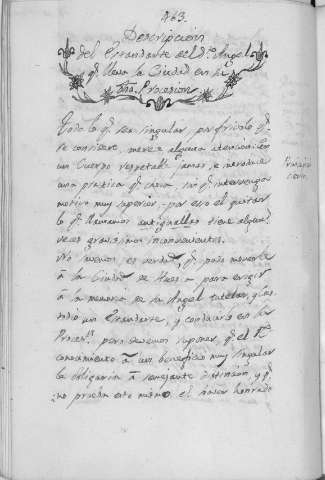 463.
Descripcion
del Estandarte del S.to Angel
q.e lleva la Ciudad en
Procesion
Todo lo q.e sea singular, por frivolo q.e
se considere, merece alguna atencion: en
un Cuerpo respetable jamas se introduce
una practica q.e sin q.e intervenga
motivo muy superior: por eso el quitar
lo q.e llamamos antiguallas tiene algunas
veces gravisimos inconvenientes.
No sabemos es verdad, q.e pudo moverle
à la Ciudad de para erigir
à la memoria de su Angel tutelar, y Custodio
un Estandarte, y conducirlo en las
Proces.s pero devemos suponer q.e el
conocimiento à un beneficio muy singular
la obligaria à semejante distincion y q.e
no prueba esto mismo el haver honrado